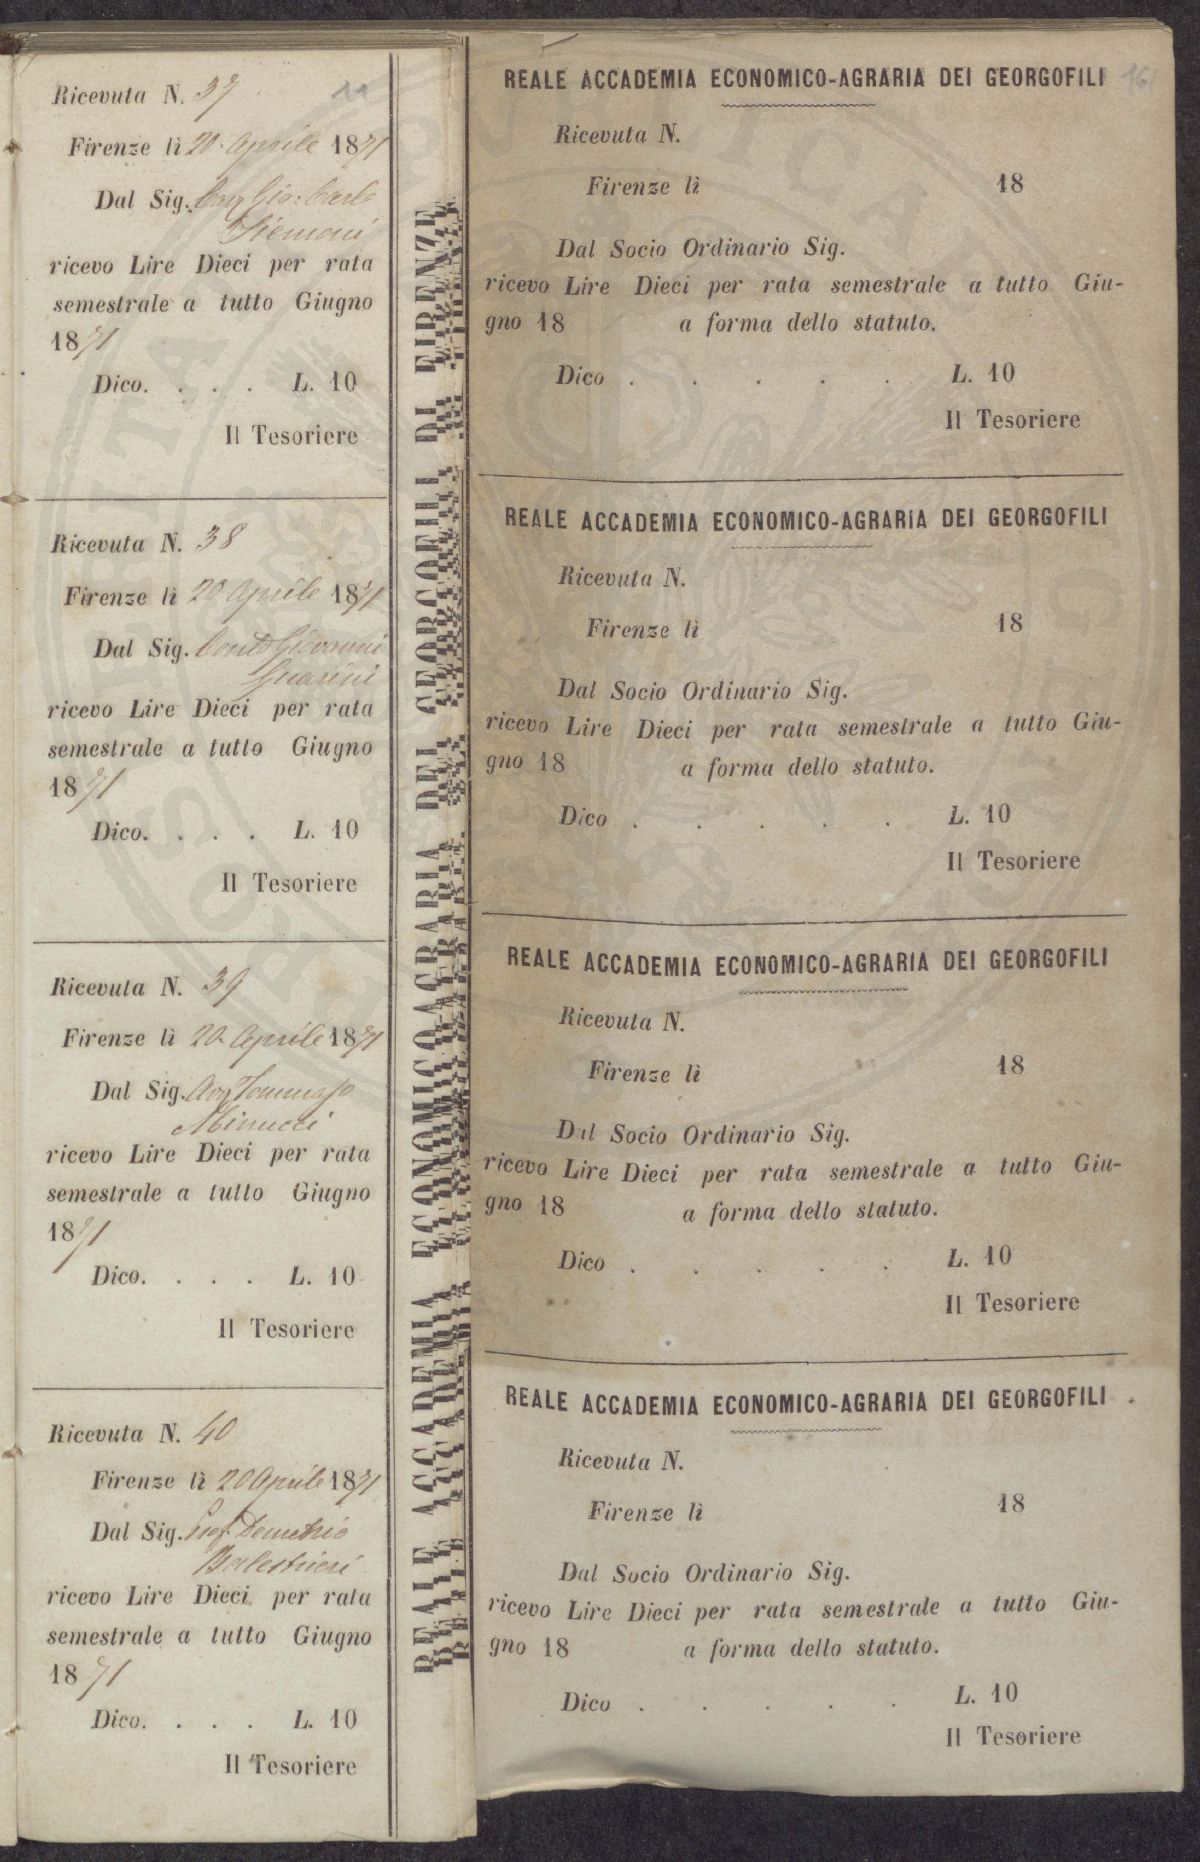 11
Ricevuta N. 37
Firenze lì 20. Aprile 1871
Dal Sig. Cav Gio: Carlo
Siemoni
ricevo Lire Dieci per rata
semestrale a tutto Giugno
1871
Dico. . . . L. 10
Il Tesoriere
Ricevuta N. 38
Firenze lì 20 Aprile 1871
Dal Sig. Conte Giovanni
Guarini
ricevo Lire Dieci per rata
semestrale a tutto Giugno
1871
Dico. . . . L. 10
Il Tesoriere
Ricevuta N. 39
Firenze lì 20 Aprile 1871
Dal Sig. Avv Tommaso
Minucci
ricevo Lire Dieci per rata
semestrale a tutto Giugno
1871
Dico. . . . L. 10
Il Tesoriere
Ricevuta N. 40
Firenze lì 20 Aprile 1871
Dal Sig. Prof. Demetrio
Balestrieri
ricevo Lire Dieci per rata
semestrale a tutto Giugno
1871
Dico. . . . L. 10
Il Tesoriere
REALE ACCADEMIA ECONOMICO AGRARIA DEI GEORGOFILI DI FIRENZE
REALE ACCADEMIA ECONOMICO-AGRARIA DEI GEORGOFILI
Ricevuta N.
Firenze lì 18
Dal Socio Ordinario Sig.
ricevo Lire Dieci per rata semestrale a tutto Giu-
gno 18 a forma dello statuto.
Dico . . . . . L. 10
Il Tesoriere
REALE ACCADEMIA ECONOMICO-AGRARIA DEI GEORGOFILI
Ricevuta N.
Firenze lì 18
Dal Socio Ordinario Sig.
ricevo Lire Dieci per rata semestrale a tutto Giu-
gno 18 a forma dello statuto.
Dico . . . . . L. 10
Il Tesoriere
REALE ACCADEMIA ECONOMICO-AGRARIA DEI GEORGOFILI
Ricevuta N.
Firenze lì 18
Dal Socio Ordinario Sig.
ricevo Lire Dieci per rata semestrale a tutto Giu-
gno 18 a forma dello statuto.
Dico . . . . . L. 10
Il Tesoriere
REALE ACCADEMIA ECONOMICO-AGRARIA DEI GEORGOFILI
Ricevuta N.
Firenze lì 18
Dal Socio Ordinario Sig.
ricevo Lire Dieci per rata semestrale a tutto Giu-
gno 18 a forma dello statuto.
Dico . . . . . L. 10
Il Tesoriere